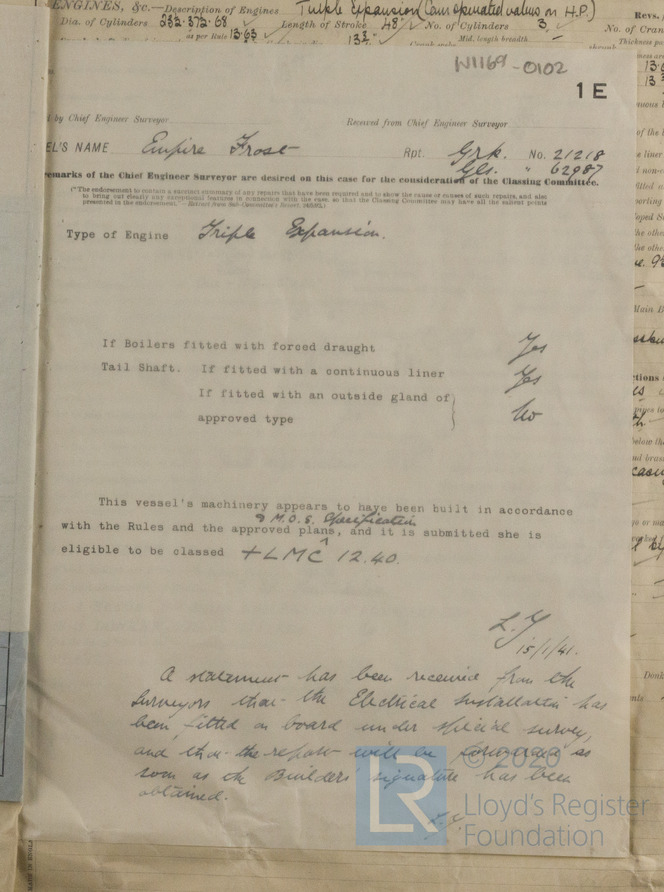 ENGINES, &c.—Description of Engines Triple Expansion (Cam operated valves on H.P.)
Dia. of Cylinders 23½. 37½. 68 Length of Stroke 48" No. of Cylinders 3 Revs.
No. of Cran
as per Rule 13.63 13¾" Mid. length breadth
Thickness pa
W1169-0102
1 E
d by Chief Engineer Surveyor Received from Chief Engineer Surveyor
EL'S NAME Empire Frost Rpt. Grk. No. 21218
Gls. " 62987
emarks of the Chief Engineer Surveyor are desired on this case for the consideration of the Classing Committee.
("The endorsement to contain a succinct summary of any repairs that have been required and to show the cause or causes of such repairs, and also
to bring out clearly any exceptional features in connexion with the case, so that the Classing Committee may have all the salient points
presented in the endorsement."—Extract from Sub-Committee's Report,
Type of Engine Triple Expansion.
If Boilers fitted with forced draught Yes
Tail Shaft. If fitted with a continuous liner Yes
If fitted with an outside gland of
approved type No
This vessel's machinery appears to have been built in accordance
& M.O.S. Specification
with the Rules and the approved plans, and it is submitted she is
eligible to be classed +LMC 12.40.
L.Y
15/1/41.
A statement has been received from the
Surveyors that the Electrical Installation has
been fitted on board under special survey,
and that the report will be forwarded as
soon as the Builders' signature has been
obtained.
© 2020
LR
Lloyd's Register
Foundation